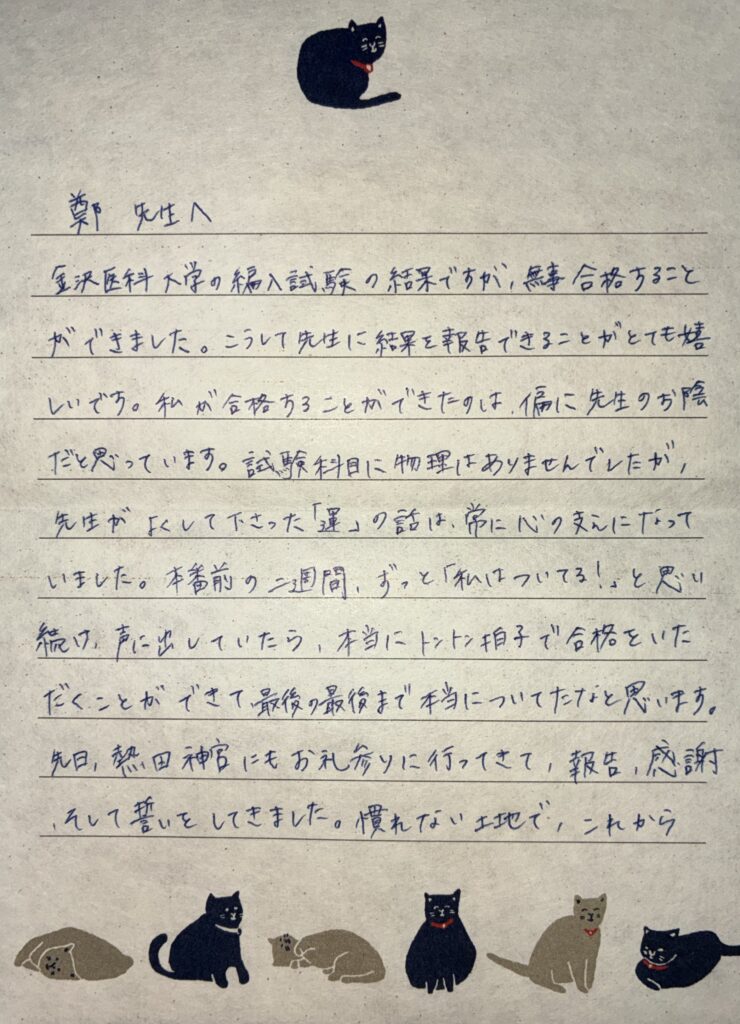 鄭 先生へ
金沢医科大学の編入試験の結果ですが、無事合格すること
ができました。こうして先生に結果を報告できることがとても嬉
しいです。私が合格することができたのは、偏に先生のお陰
だと思っています。試験科目に物理はありませんでしたが、
先生がよくして下さった「運」の話は、常に心の支えになって
いました。本番前の二週間、ずっと「私はついてる!」と思い
続け、声に出していたら、本当にトントン拍子で合格をいた
だくことができて、最後の最後まで本当についてたなと思います。
先日、熱田神宮にもお礼参りに行ってきて、報告、感謝
、そして誓いをしてきました。慣れない土地で、これから